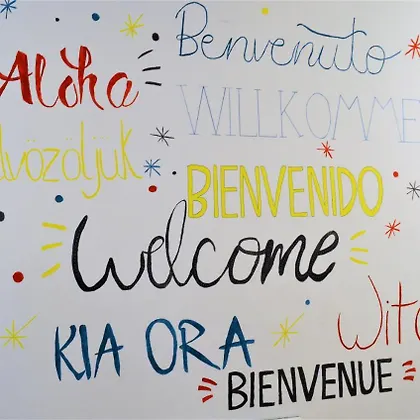 Benvenuto
Aloha
WILLKOMME
dvözöljük
BIENVENIDO
Welcome
KIA ORA
Wit
BIENVENUE